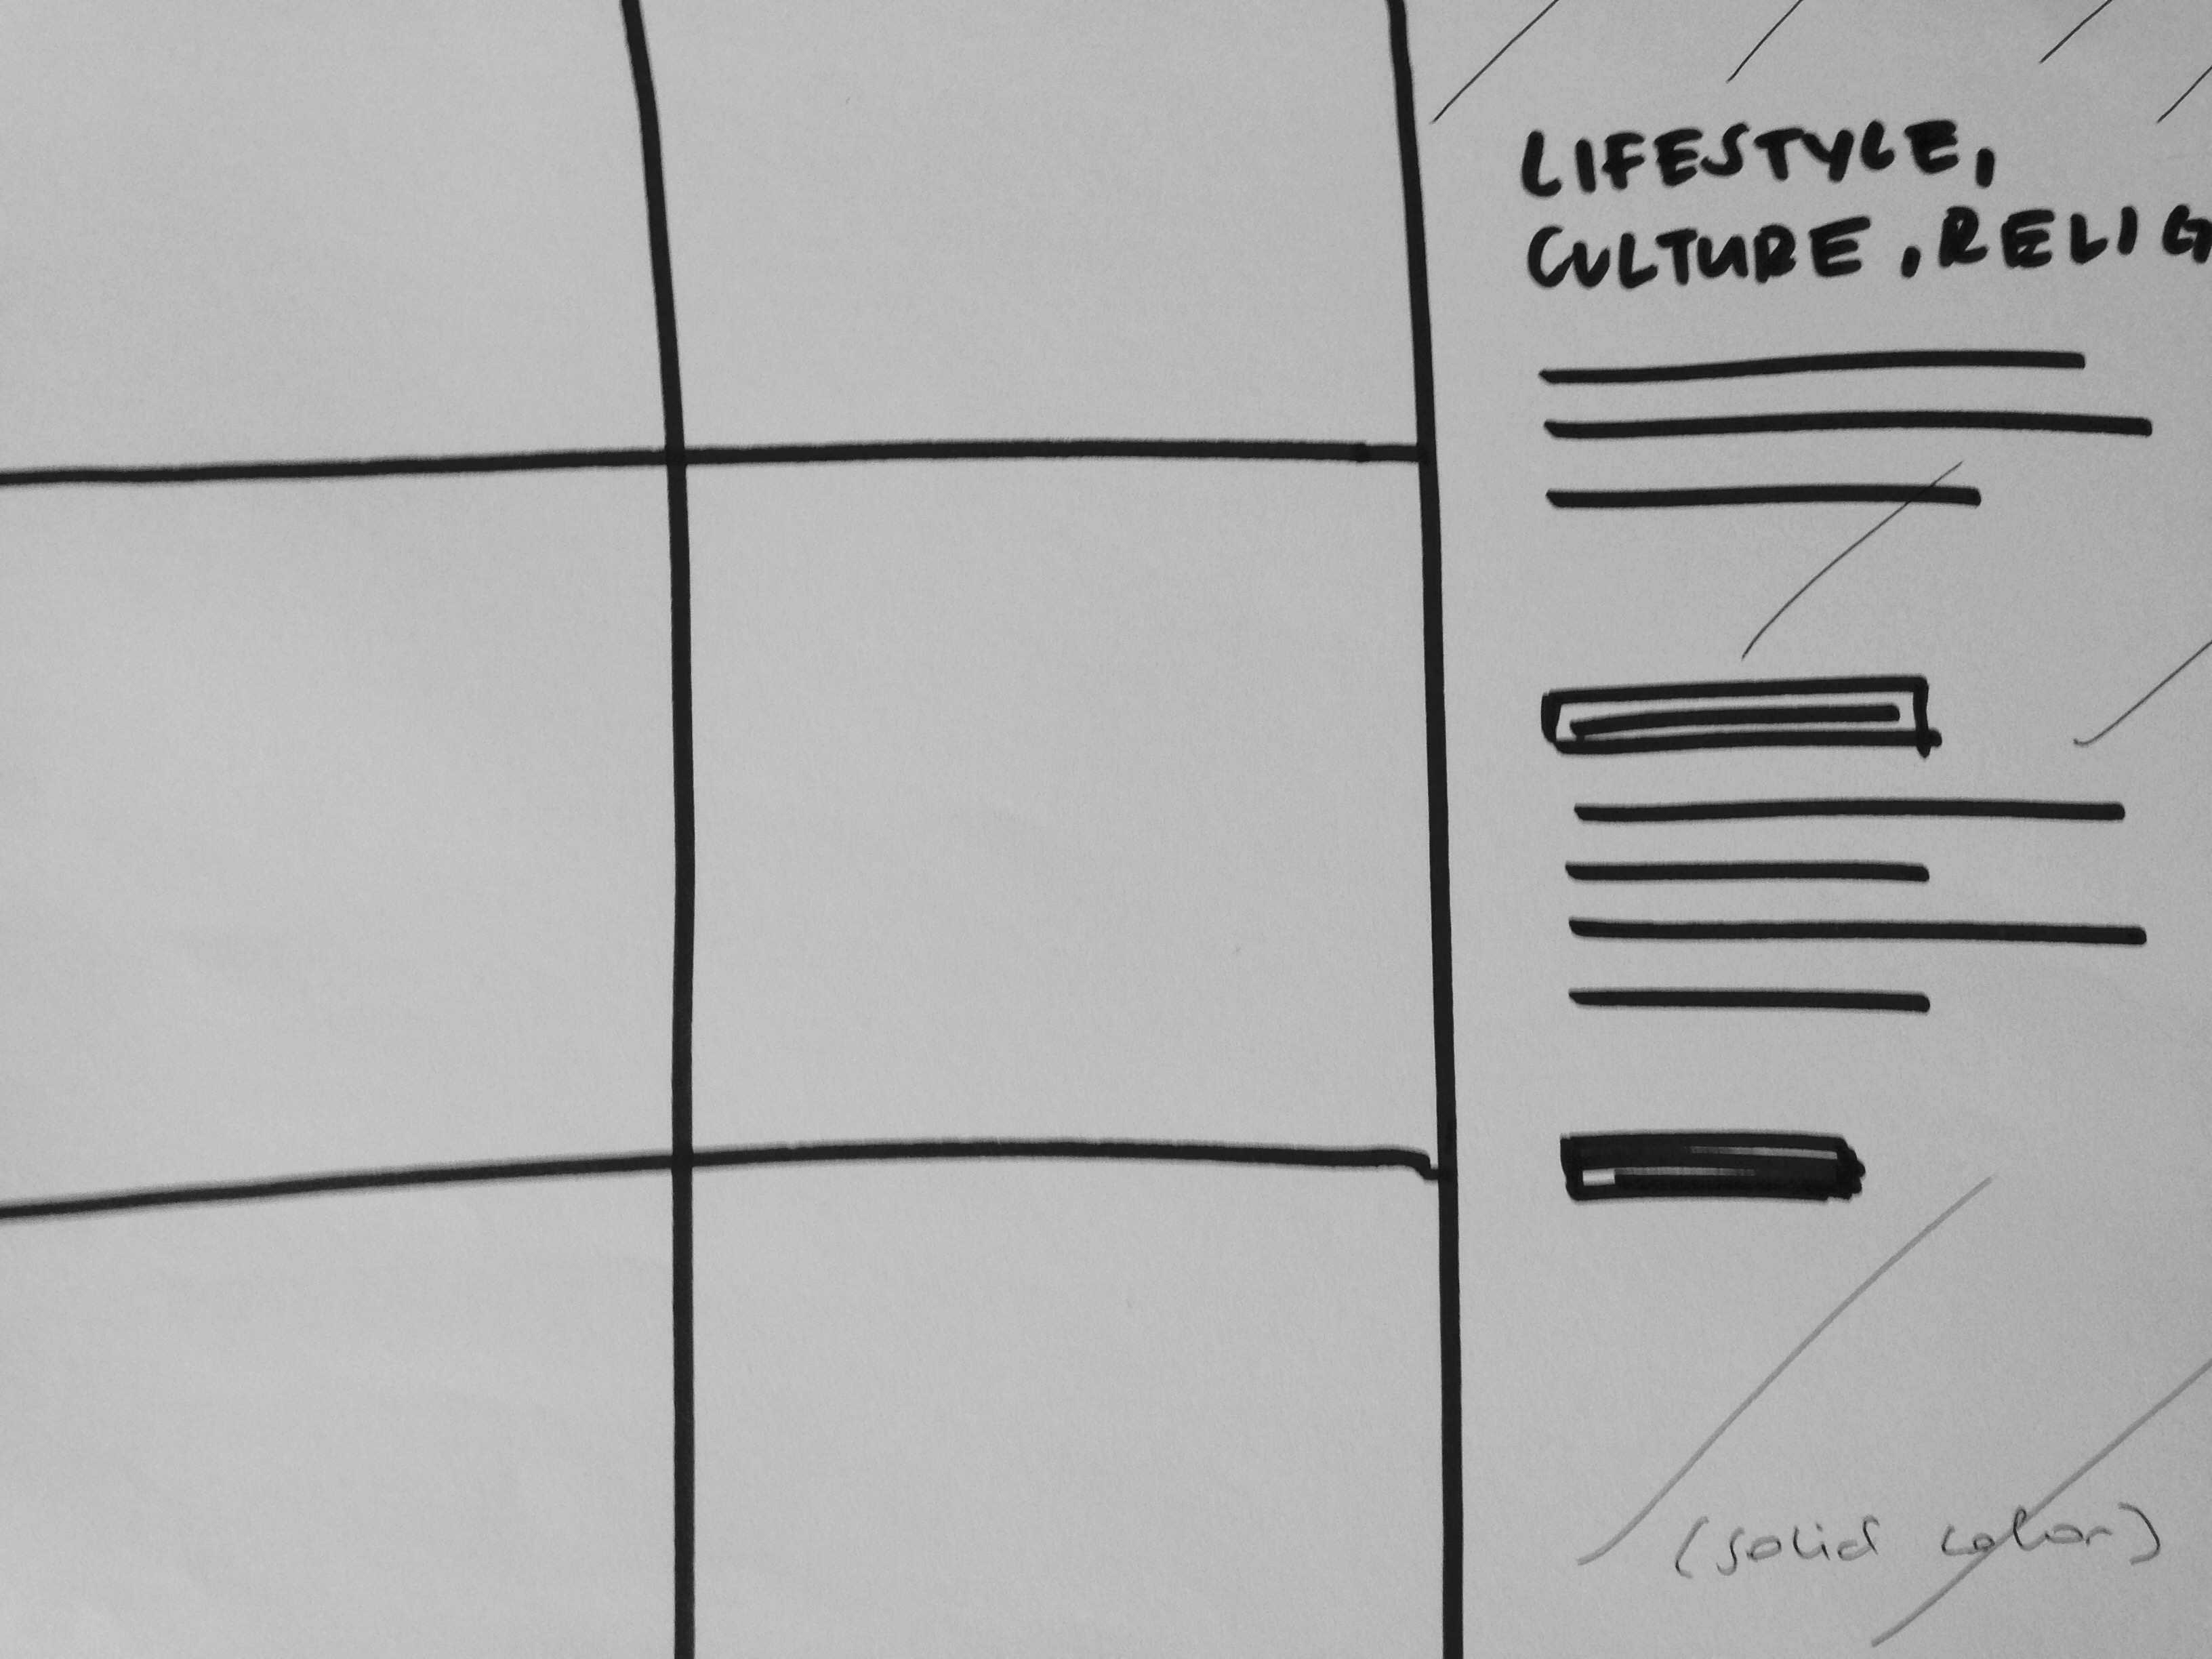 LIFESTYLE,
CULTURE, RELIG
(solid color)